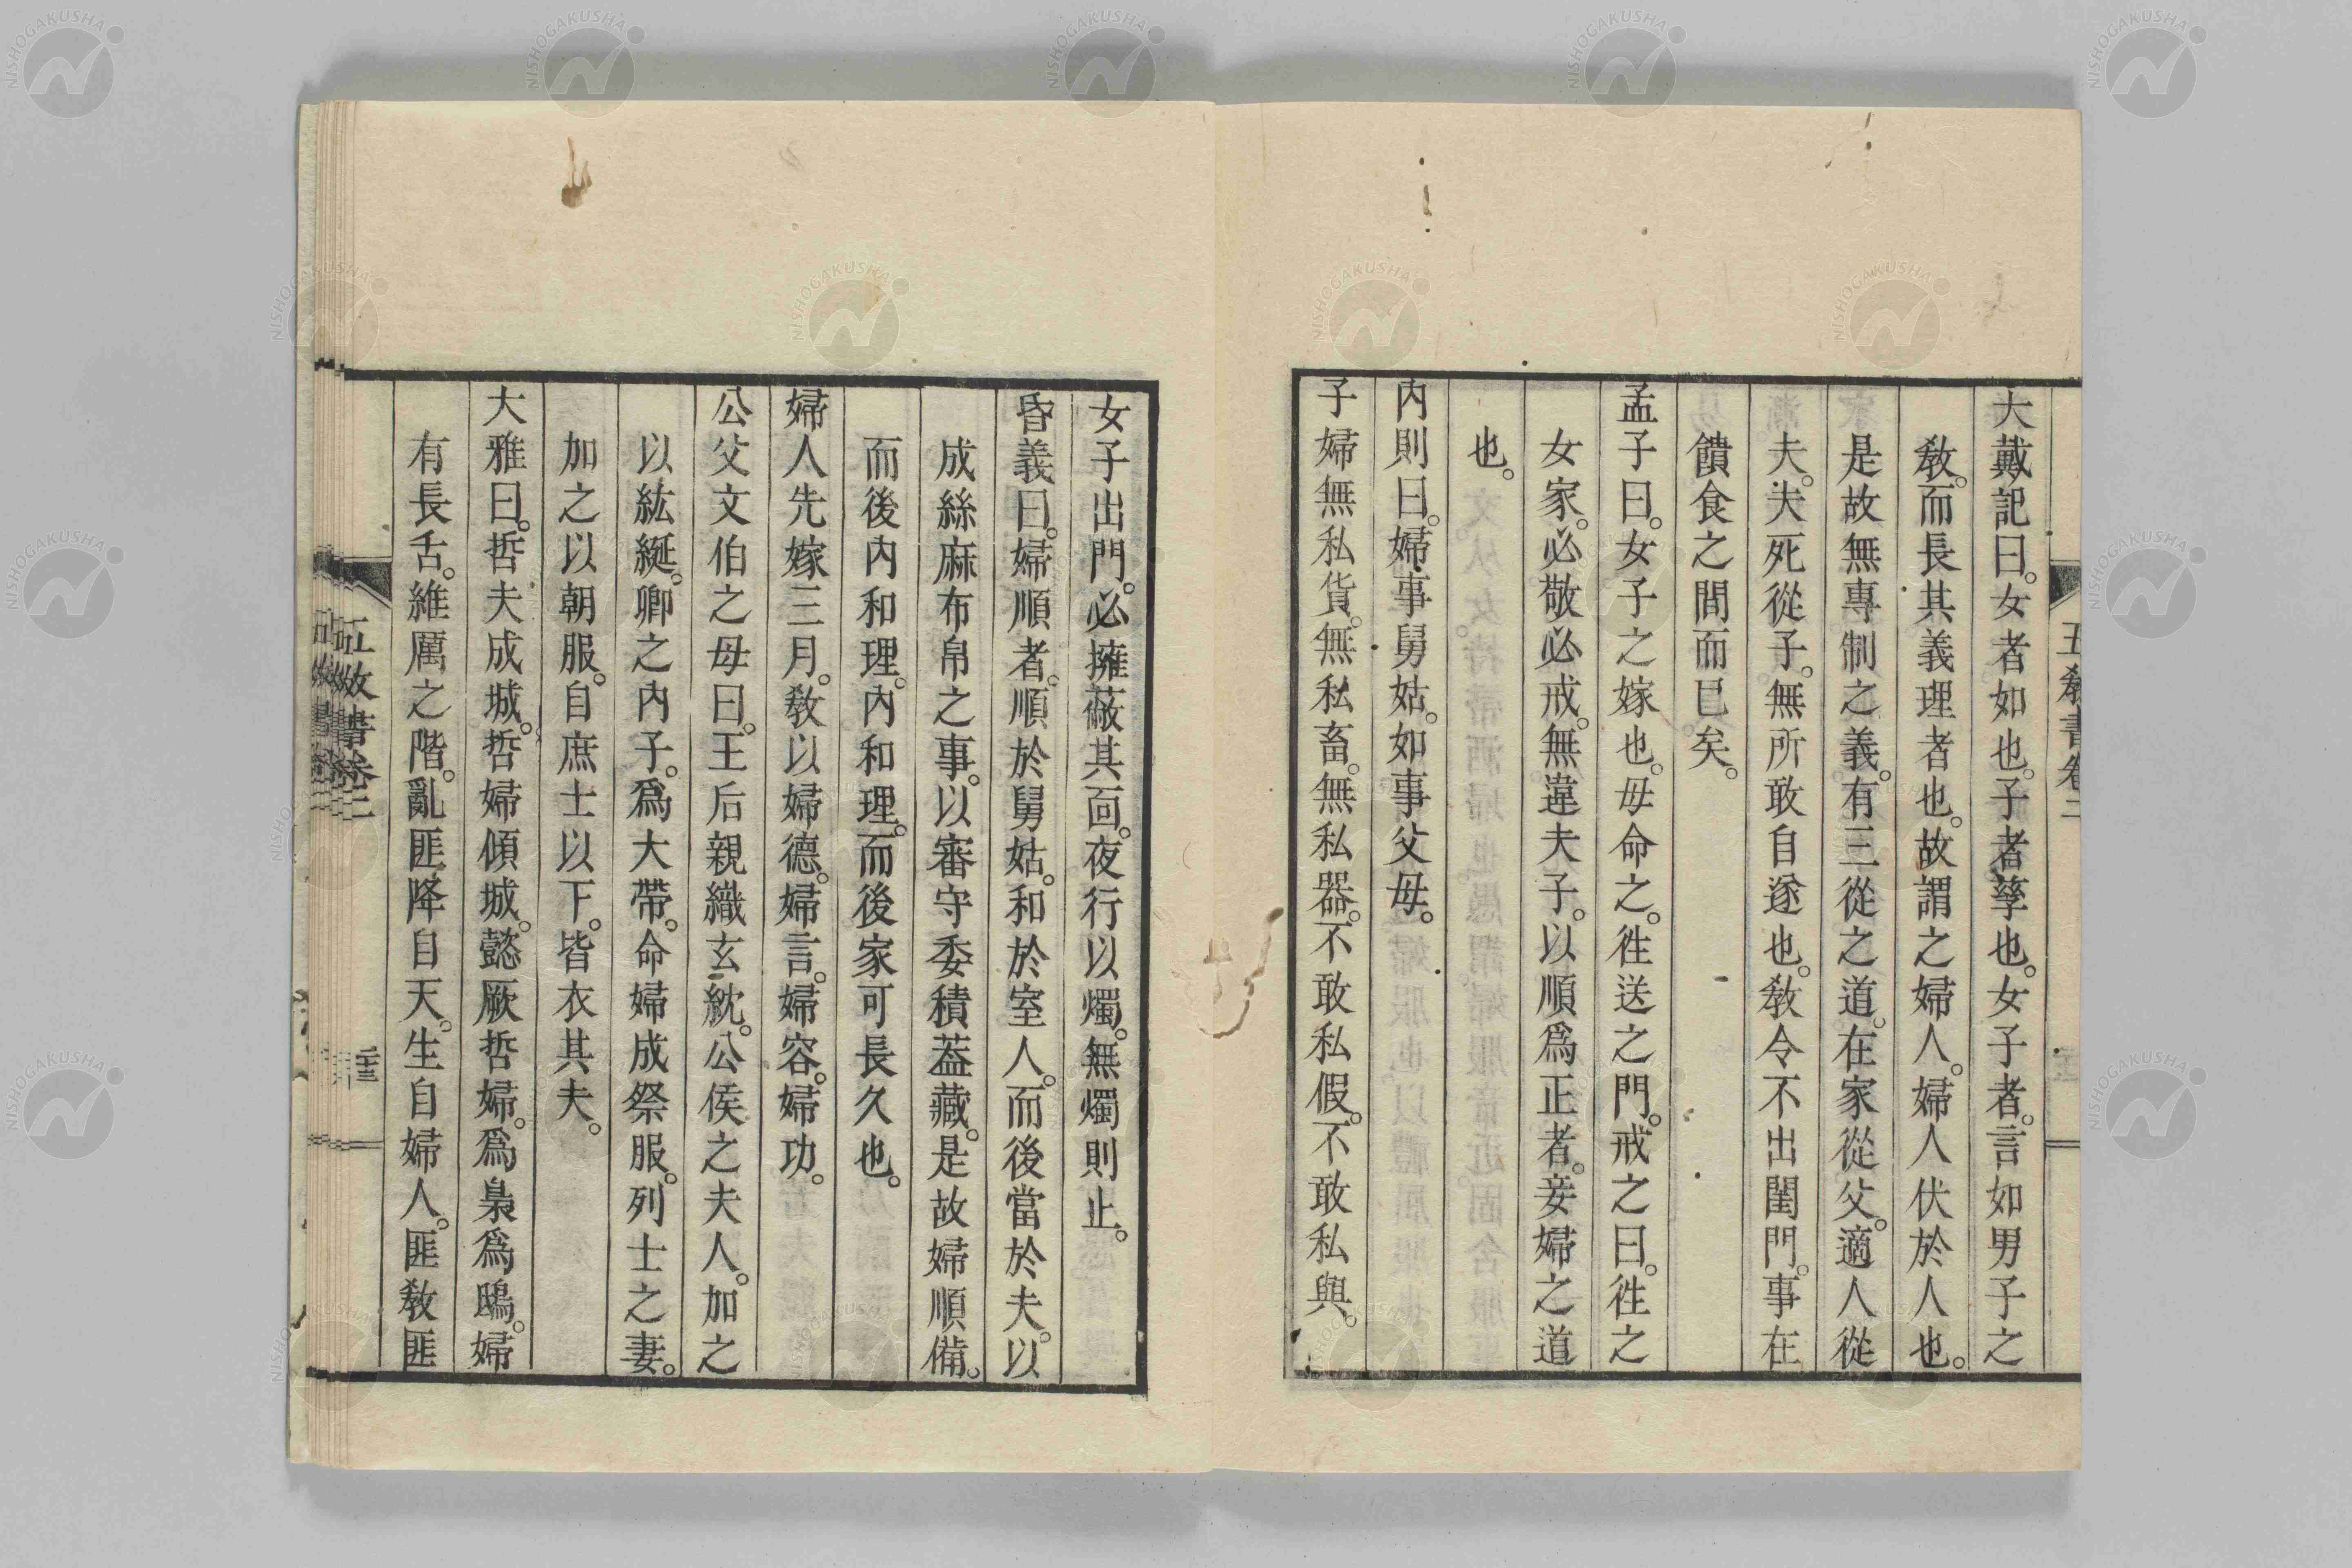 大戴記曰。女者如也。子者孳也。女子者。言如男子之
敎。而長其義理者也。故謂之婦人。婦人伏於人也。
是故無專制之義。有三從之道。在家從父。適人從
夫。夫死從子。無所敢自遂也。敎令不出閨門。事在
饋食之間而已矣。
孟子曰。女子之嫁也。母命之。徃送之門。戒之曰。徃之
女家。必敬必戒。無違夫子。以順爲正者。妾婦之道
也。
內則曰。婦事舅姑。如事父母。
子婦無私貨。無私畜。無私器。不敢私假。不敢私與。
女子出門。必擁蔽其面。夜行以燭。無燭則止。
昏義曰。婦順者。順於舅姑。和於室人。而後當於夫。以
成絲麻布帛之事。以審守委積葢藏。是故婦順備。
而後內和理。內和理。而後家可長久也。
婦人先嫁三月。敎以婦德。婦言。婦容。婦功。
公父文伯之母曰。王后親織玄紞。公侯之夫人。加之
以紘綖。卿之內子。爲大帶。命婦成祭服。列士之妻。
加之以朝服。自庶士以下。皆衣其夫。
大雅曰。哲夫成城。哲婦傾城。懿厥哲婦。爲梟爲鴟。婦
有長舌。維厲之階。亂匪降自天。生自婦人。匪敎匪
五敎書卷二
NISHOGAKUSHA